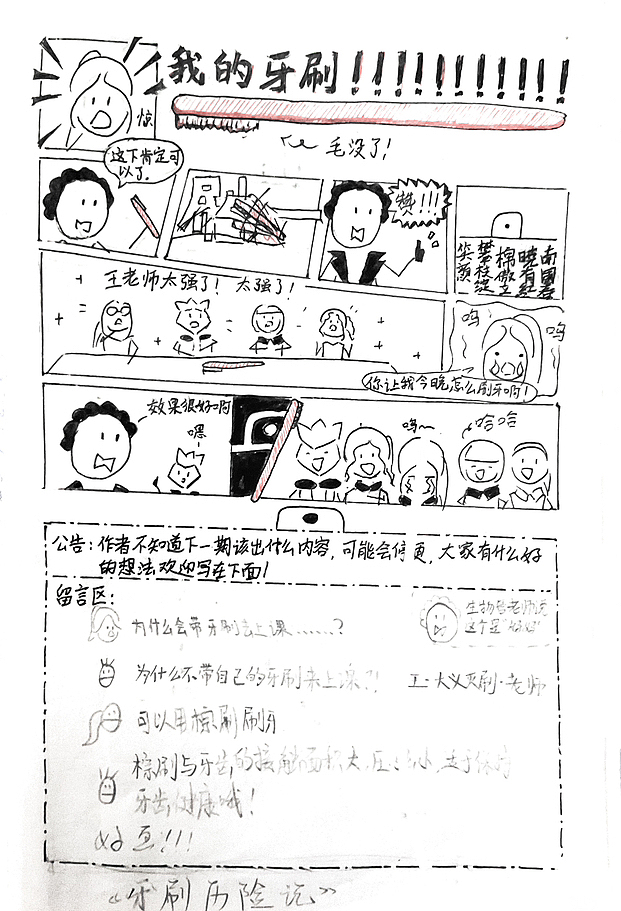 我的牙刷!!!!!!!!!!!!!
惊
毛没了!
这下肯定可
以了。
赞!!!
南国春
晓有红
棉傲立
攀枝绽
笑颜
王老师太强了! 太强了!
呜
呜
你让我今晚怎么刷牙啊!
效果很好啊
嘿
呜~
哈哈
公告:作者不知道下一期该出什么内容,可能会停更,大家有什么好
的想法欢迎写在下面!
留言区:
为什么会带牙刷去上课……?
生物
老师说
这个是
为什么不带自己的牙刷来上课?!
王·大义灭刷·老师
可以用棕刷刷牙
棕刷与牙齿的接触面积大,压
小,
牙齿健康哦!
!!!
《牙刷历险记》